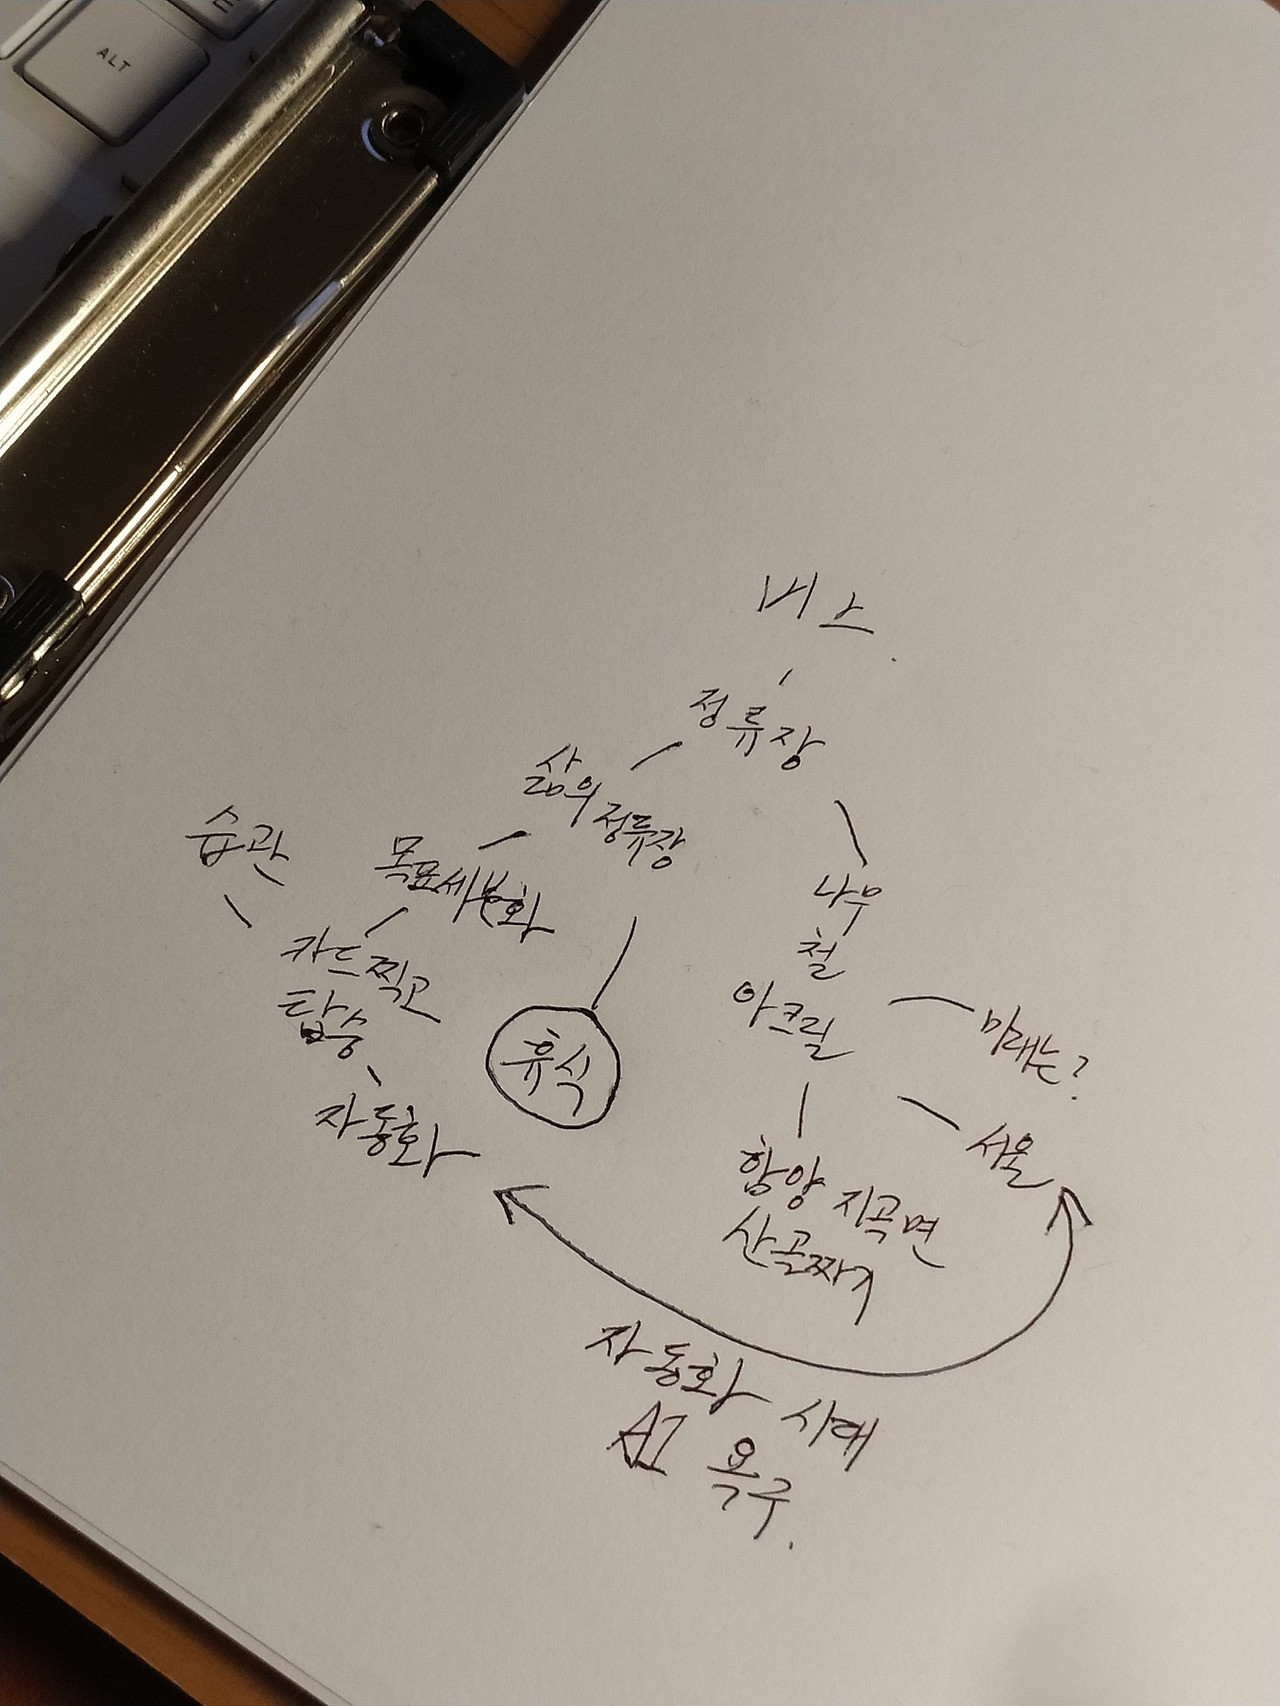 ALT
버스
정류장
삶의 정류장
습관
목표세분화
나무
철
아크릴
카드찍고
탑승
휴식
미래는?
자동화
서울
함양 지곡면
산골짜기
자동화 시대
AI 욕구.